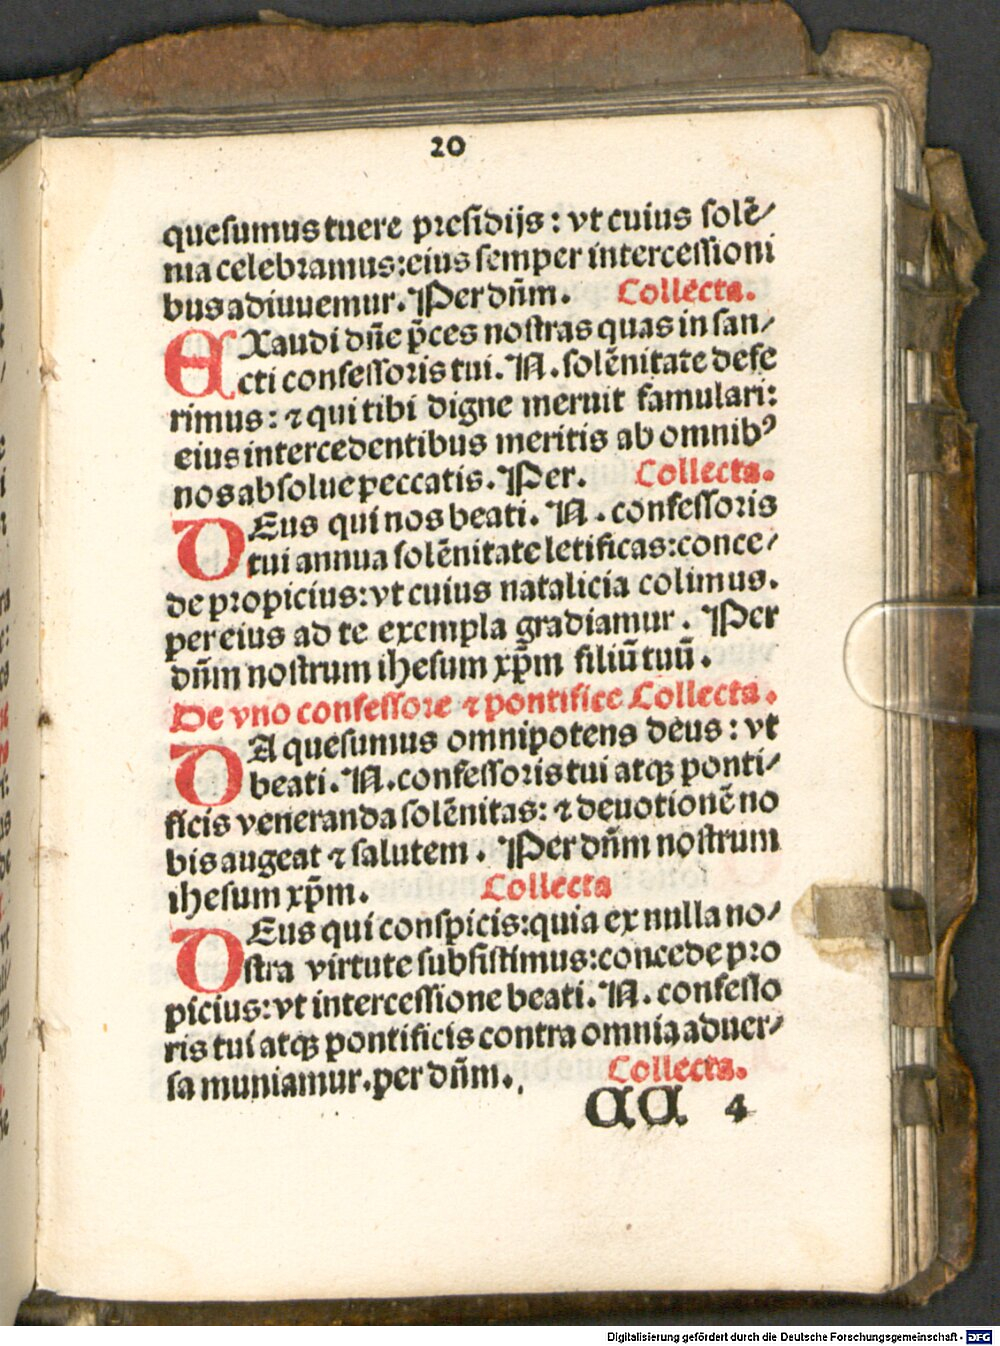 20
quesumus tuere presidijs : vt cuius solē/
nia celebramus:eius semper intercessioni
bus adiuuemur. Per dn̄m. Collecta.
EXaudi dn̄e p̄ces nostras quas in san/
cti confessoris tui. N. solēnitate defe
rimus: ⁊ qui tibi digne meruit famulari:
eius intercedentibus meritis ab omnibꝰ
nos absolue peccatis. Per. Collecta.
DEus qui nos beati. N. confessoris
tui annua solēnitate letificas:conce/
de propicius:vt cuius natalicia colimus.
per eius ad te exempla gradiamur. Per
dn̄m nostrum ihesum xp̄m filiū tuū.
De vno confessore ⁊ pontifice Collecta.
DA quesumus omnipotens deus : vt
beati. N. confessoris tui atqꝫ ponti/
ficis veneranda solēnitas: ⁊ deuotionē no
bis augeat ⁊ salutem. Per dn̄m nostrum
ihesum xp̄m. Collecta
DEus qui conspicis:quia ex nulla no/
stra virtute subsistimus:concede pro
picius:vt intercessione beati. N. confesso
ris tui atqꝫ pontificis contra omnia aduer/
sa muniamur.per dn̄m. Collecta.
AA 4
Digitalisierung gefördert durch die Deutsche Forschungsgemeinschaft - DFG